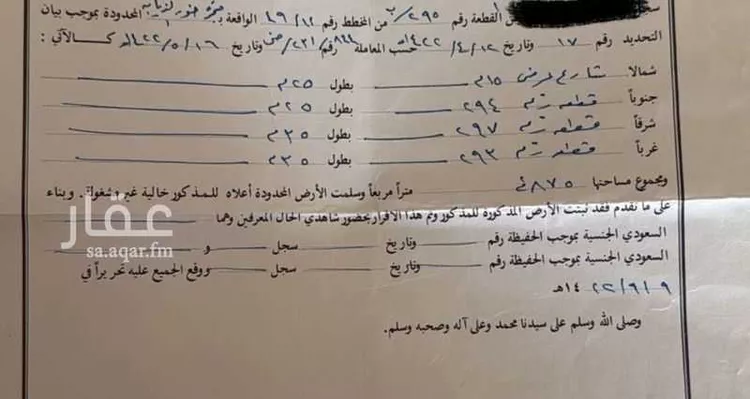 القطعة رقم ٢٩٥/ب من المخطط رقم ٤٩/١٢ الواقعة المحدودة بموجب بيان
التحديد رقم ١٧ وتاريخ ١٤٢٢/٤/١٢هـ حسب المعاملة رقم وتاريخ ١٤٢٢/٥/١٦هـ كالآتي :
شمالا شارع عرض ١٥م بطول ٢٥م
جنوباً قطعة رقم ٢٩٤ بطول ٢٥م
شرقاً قطعة رقم ٢٩٧ بطول ٣٥م
غرباً قطعة رقم ٢٩٣ بطول ٣٥م
ومجموع مساحتها ٨٧٥م متراً مربعاً وسلمت الأرض المحدودة أعلاه للمذكور خالية غير مشغولة . وبناء
على ما تقدم فقد ثبتت الأرض المذكورة للمذكور وتم هذا الاقرار بحضور شاهدي الحال المعرفين وهما
السعودي الجنسية بموجب الحفيظة رقم وتاريخ سجل و
السعودي الجنسية بموجب الحفيظة رقم وتاريخ سجل ووقع الجميع عليه تحريراً في
١٤٢٢/٩/٩هـ
وصلى الله وسلم على سيدنا محمد وعلى آله وصحبه وسلم.
عقار
sa.aqar.fm